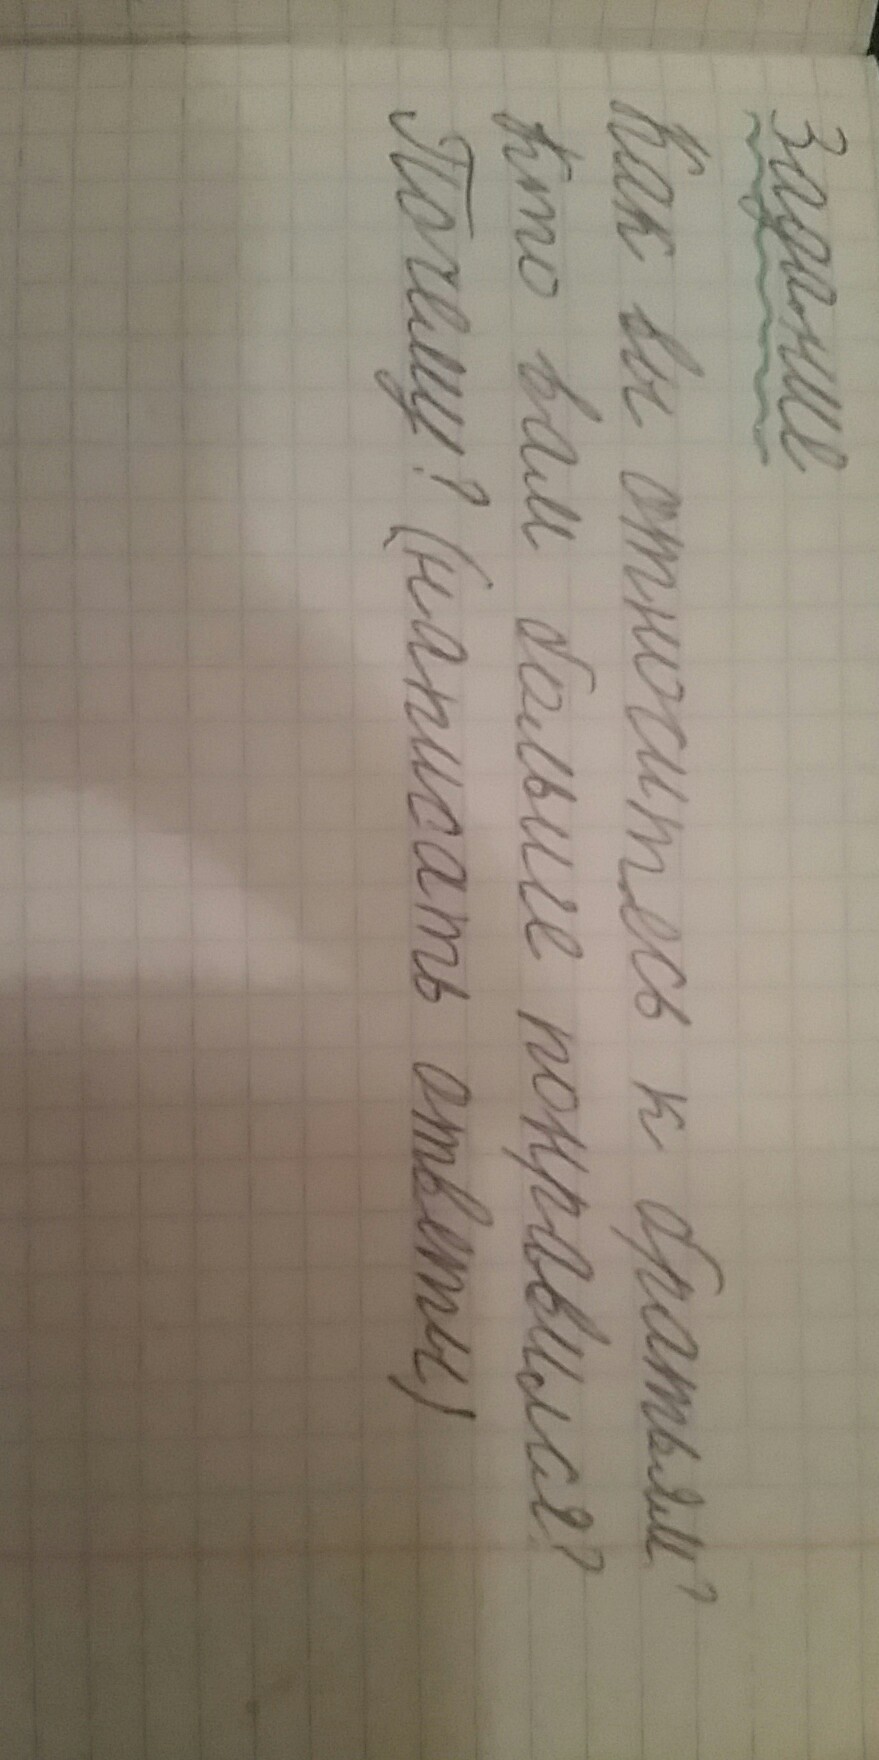 Задание
Как вы относитесь к братьям?
Кто вам больше понравился?
Почему? (написать ответы)